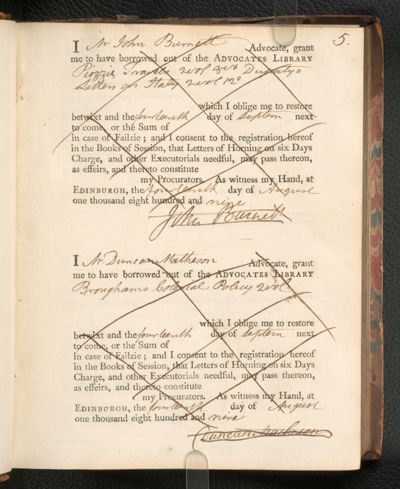 5.
I Mr John Burnett Advocate, grant
me to have borrowed out of the ADVOCATES LIBRARY
Piozzis Travels 2 vol 8vo Dupatys
Letters on Italy 2 vol 12o
which I oblige me to restore
betwixt and the fourteenth day of Septem next
to come, or the Sum of
in case of Failzie; and I consent to the registration hereof
in the Books of Session, that Letters of Horning on six Days
Charge, and other Executorials needful, may pass thereon,
as effeirs, and thereto constitute
my Procurators. As witness my Hand, at
EDINBURGH, the fourteenth day of August
one thousand eight hundred and nine
John Burnett
I Mr Duncan Matheson Advocate, grant
me to have borrowed out of the ADVOCATES LIBRARY
Broughams Colonial Policy 2 vol
which I oblige me to restore
betwixt and the fourteenth day of Septem next
to come, or the Sum of
in case of Failzie; and I consent to the registration hereof
in the Books of Session, that Letters of Horning on six Days
Charge, and other Executorials needful, may pass thereon,
as effeirs, and thereto constitute
my Procurators. As witness my Hand, at
EDINBURGH, the fourteenth day of August
one thousand eight hundred and nine
Duncan Matheson